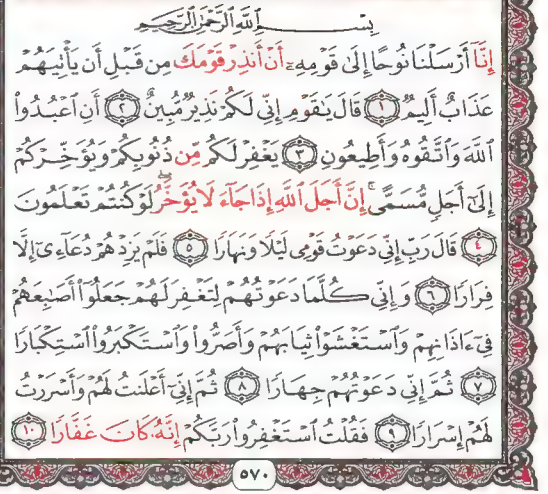 بِسْمِ ٱللَّهِ ٱلرَّحْمَٰنِ ٱلرَّحِيمِ
إِنَّآ أَرْسَلْنَا نُوحًا إِلَىٰ قَوْمِهِۦٓ أَنْ أَنذِرْ قَوْمَكَ مِن قَبْلِ أَن يَأْتِيَهُمْ
عَذَابٌ أَلِيمٌ ١ قَالَ يَٰقَوْمِ إِنِّي لَكُمْ نَذِيرٌ مُّبِينٌ ٢ أَنِ ٱعْبُدُوا۟
ٱللَّهَ وَٱتَّقُوهُ وَأَطِيعُونِ ٣ يَغْفِرْ لَكُم مِّن ذُنُوبِكُمْ وَيُؤَخِّرْكُمْ
إِلَىٰٓ أَجَلٍ مُّسَمًّى ۚ إِنَّ أَجَلَ ٱللَّهِ إِذَا جَآءَ لَا يُؤَخَّرُ ۖ لَوْ كُنتُمْ تَعْلَمُونَ
٤ قَالَ رَبِّ إِنِّي دَعَوْتُ قَوْمِي لَيْلًا وَنَهَارًا ٥ فَلَمْ يَزِدْهُمْ دُعَآءِىٓ إِلَّا
فِرَارًا ٦ وَإِنِّي كُلَّمَا دَعَوْتُهُمْ لِتَغْفِرَ لَهُمْ جَعَلُوٓا۟ أَصَٰبِعَهُمْ
فِىٓ ءَاذَانِهِمْ وَٱسْتَغْشَوْا۟ ثِيَابَهُمْ وَأَصَرُّوا۟ وَٱسْتَكْبَرُوا۟ ٱسْتِكْبَارًا
٧ ثُمَّ إِنِّي دَعَوْتُهُمْ جِهَارًا ٨ ثُمَّ إِنِّيٓ أَعْلَنتُ لَهُمْ وَأَسْرَرْتُ
لَهُمْ إِسْرَارًا ٩ فَقُلْتُ ٱسْتَغْفِرُوا۟ رَبَّكُمْ إِنَّهُۥ كَانَ غَفَّارًا ١٠
٥٧٠